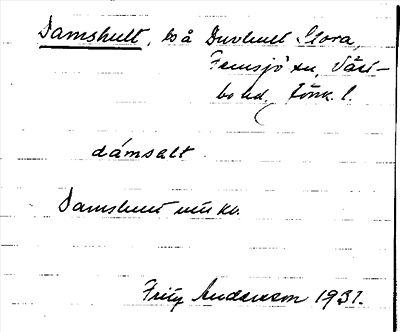 Damshult, bo å Duvhult Stora,
Femsjö sn, Väst-
bo hd, Jönk. l.
dámsalt
Damshult
Frity Anderson 1931.